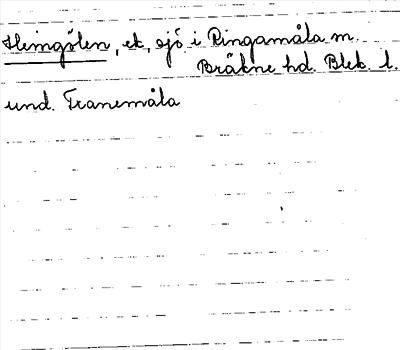 Heingölen, ek, sjö i Ringamåla m.
Bräkne hd. Blek. l.
und. Tranemåla